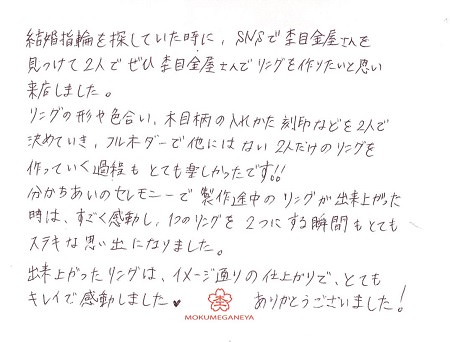 結婚指輪を探していた時に、SNSで杢目金屋さんを
見つけて2人でぜひ杢目金屋さんでリングを作りたいと思い
来店しました。
リングの形や色合い、木目柄の入れかた刻印などを2人で
決めていき、フルオーダーで他にはない2人だけのリングを
作っていく過程もとても楽しかったです!!
分かちあいのセレモニーで製作途中のリングが出来上がった
時は、すごく感動し、1つのリングを2つにする瞬間もとても
ステキな思い出になりました。
出来上がったリングは、イメージ通りの仕上がりで、とても
キレイで感動しました♥ ありがとうございました!
MOKUMEGANEYA